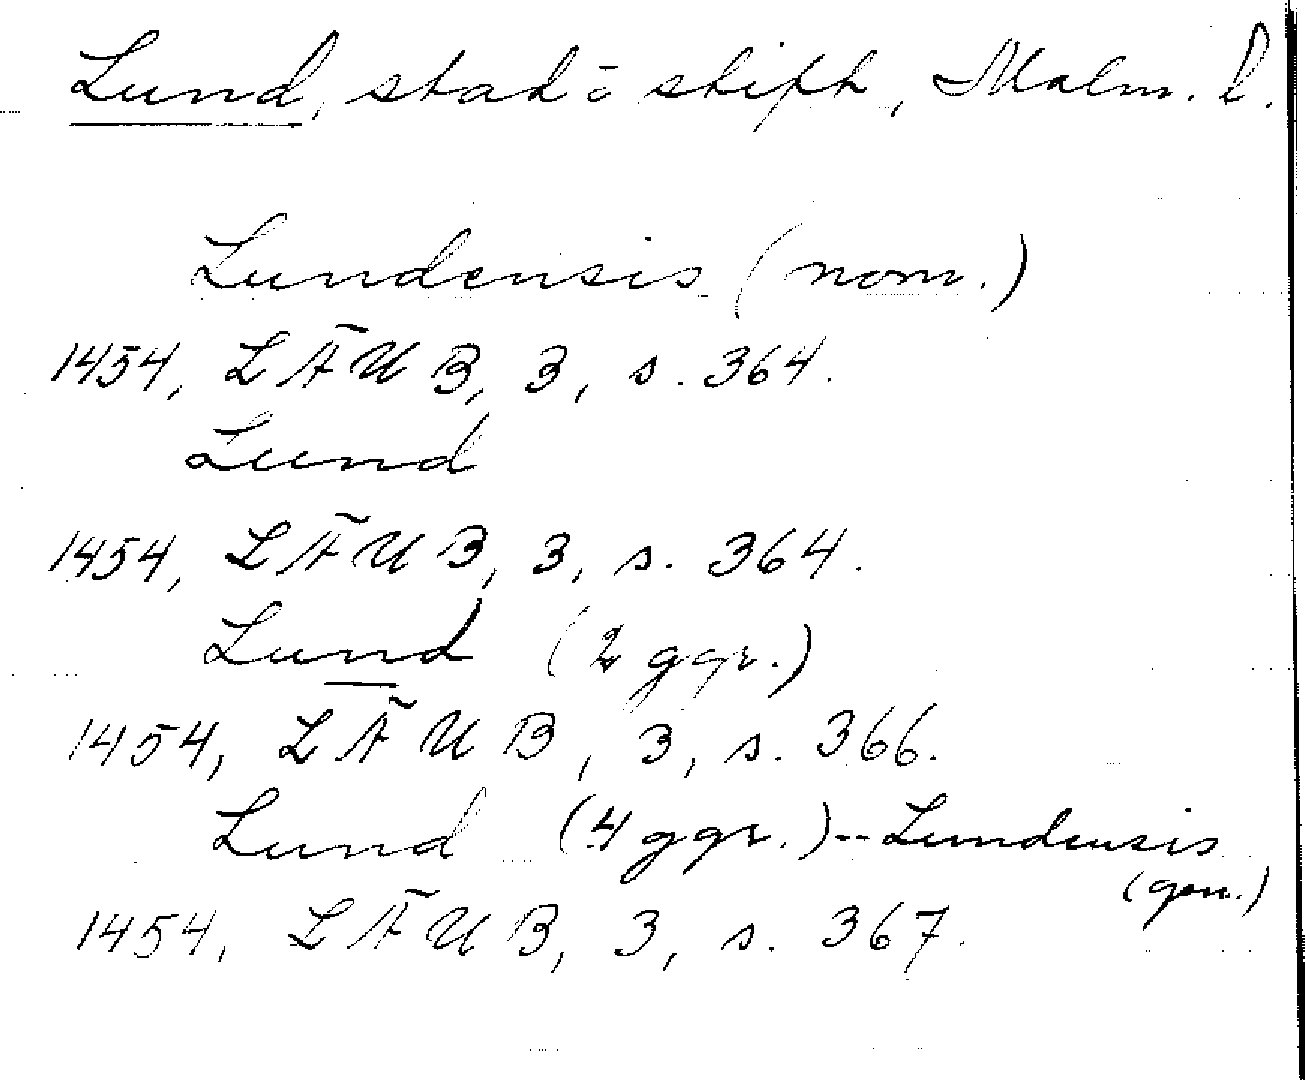 Lund, stad o. stift, Malm. l.
Lundensis (nom.)
1454, LÄUB, 3, s. 364.
Lund
1454, LÄUB, 3, s. 364.
Lund (2 ggr.)
1454, LÄUB, 3, s. 366.
Lund (4 ggr.) -- Lundensis
(gen.)
1454, LÄUB, 3, s. 367.